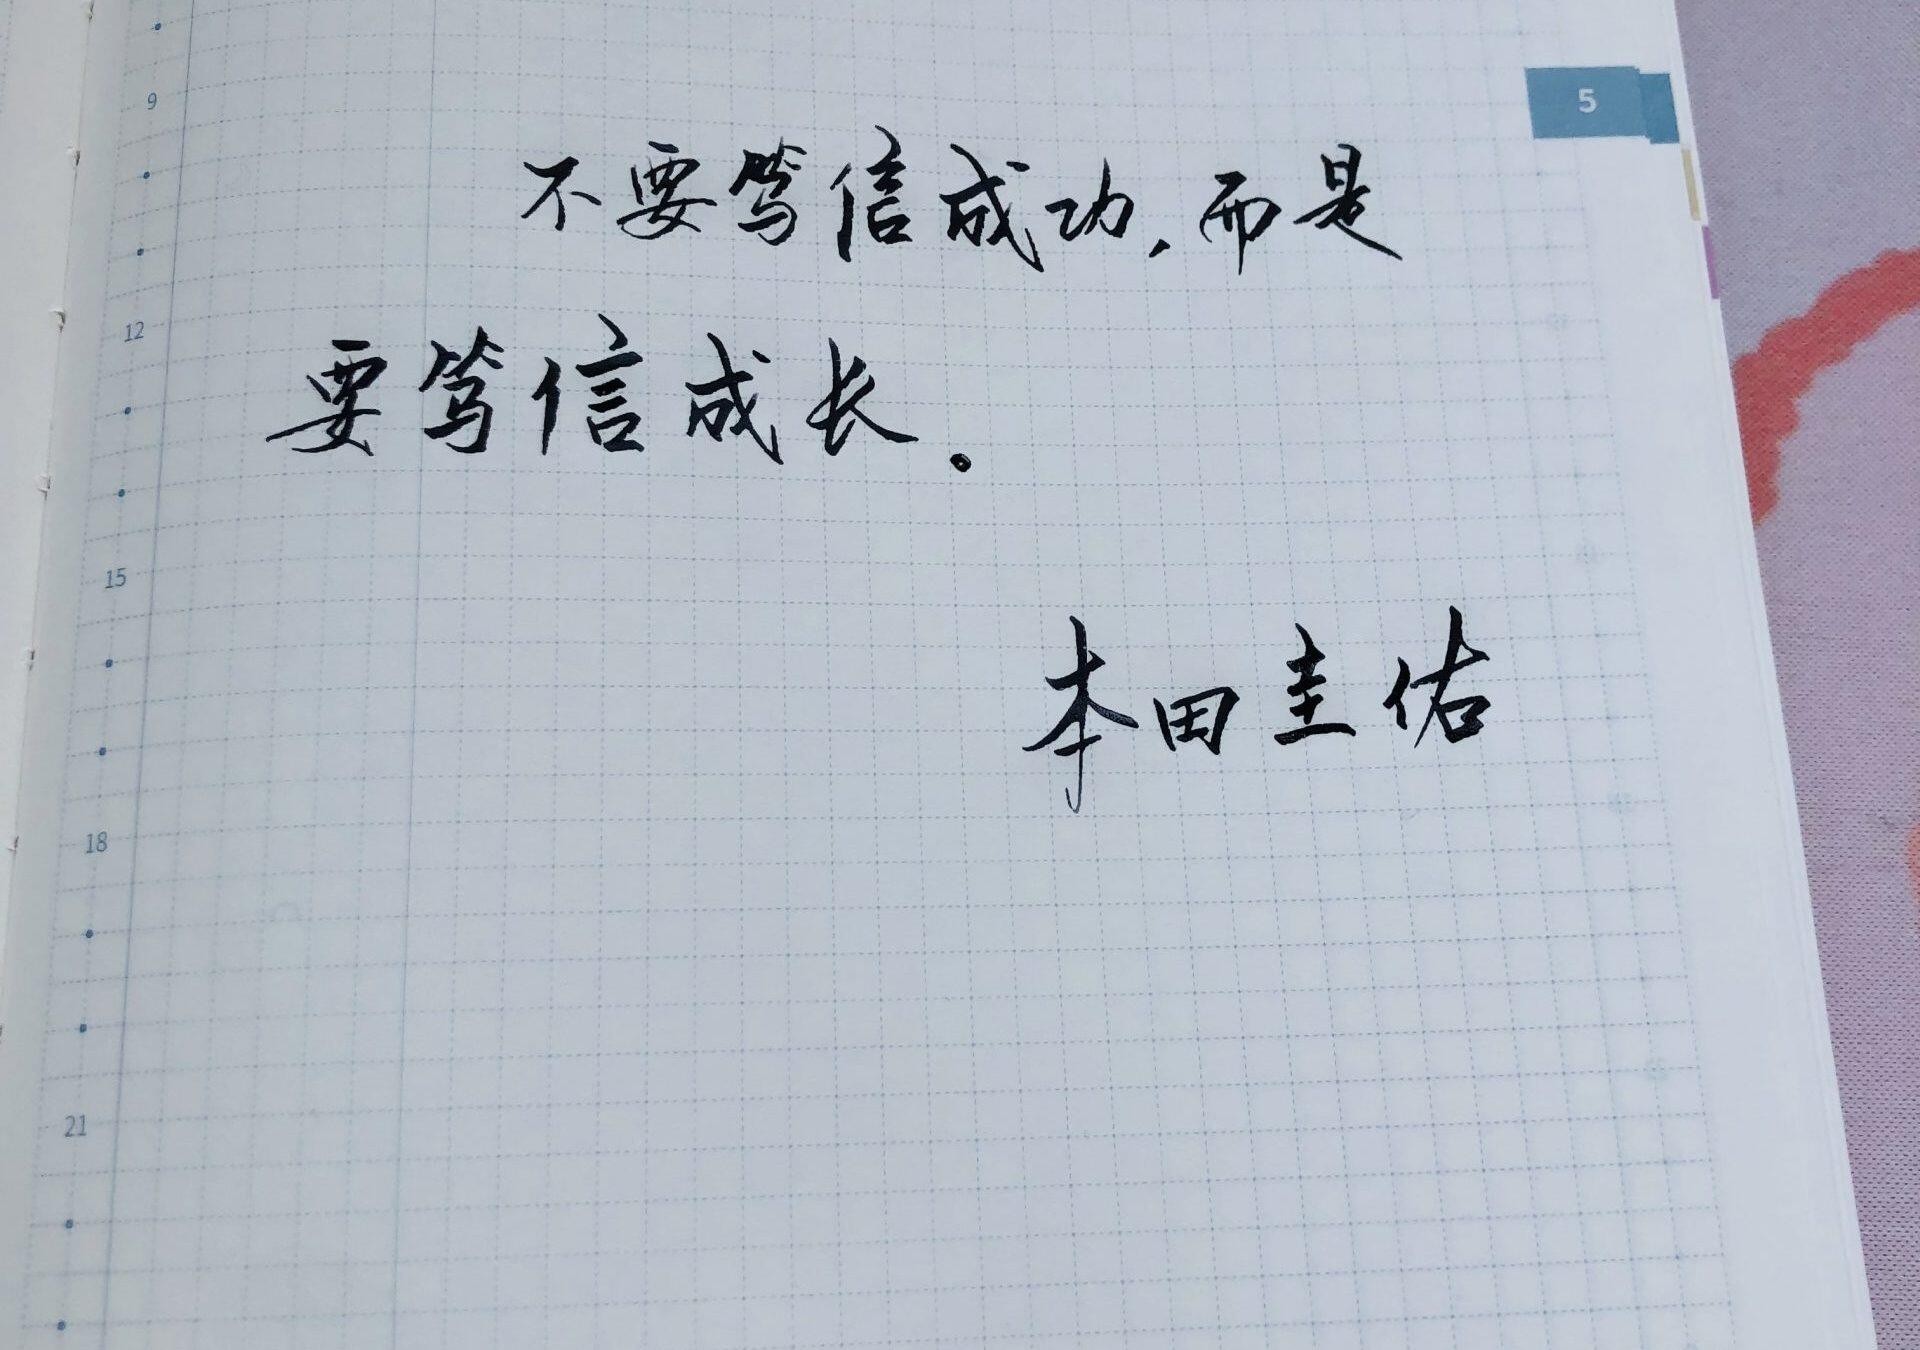 5
9
不要笃信成功,而是
12
要笃信成长。
15
本田圭佑
18
21